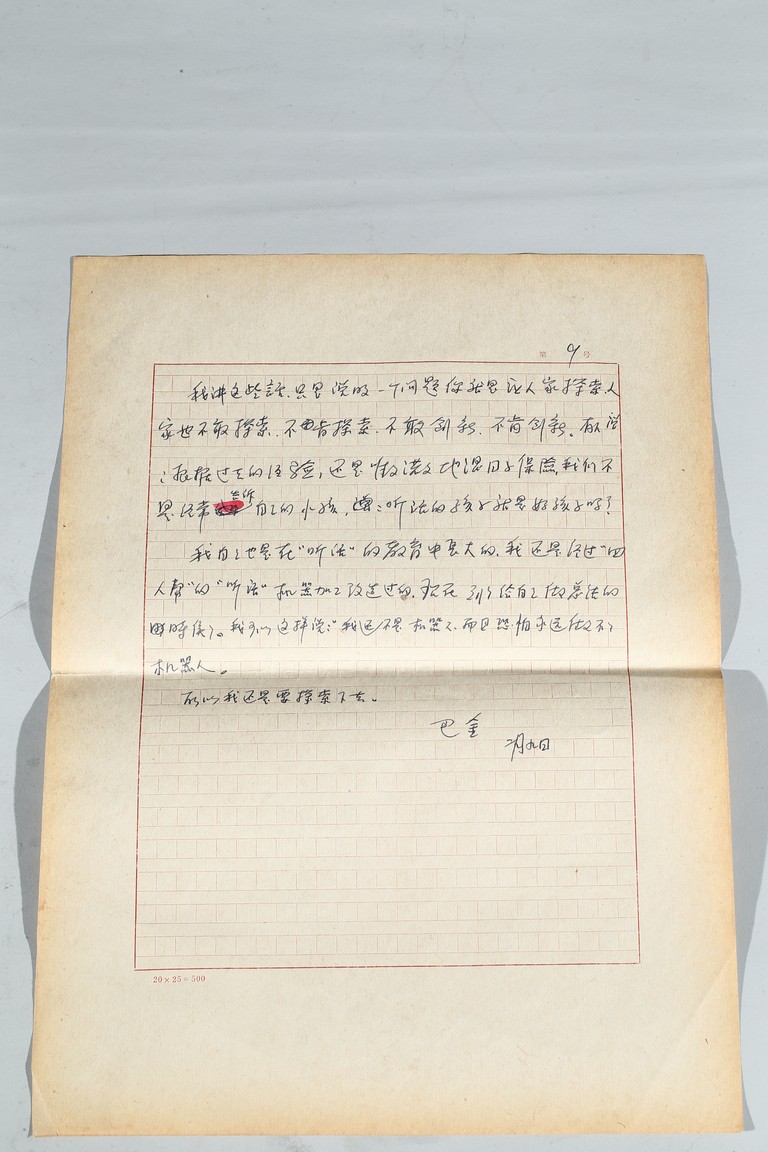 第 9 号
我讲这些话,只是说明一个问题你就是让人家探索,人
家也不敢探索,不肯探索,不敢创新,不肯创新。有人说
:根据过去的经验,还是唯唯诺诺地混日子保险,我们不
是经常告诉自己的小孩,:听话的孩子就是好孩子吗?
我自己也是在“听话”的教育中长大的,我还是经过“四
人帮”的“听话”机器加工改造过的,现在到了给自己做总结的
时候了。我可以这样说:“我还不是机器人,而且恐怕永远做不了
机器人。
所以我还是要探索下去。
巴金
二月九日
20×25=500